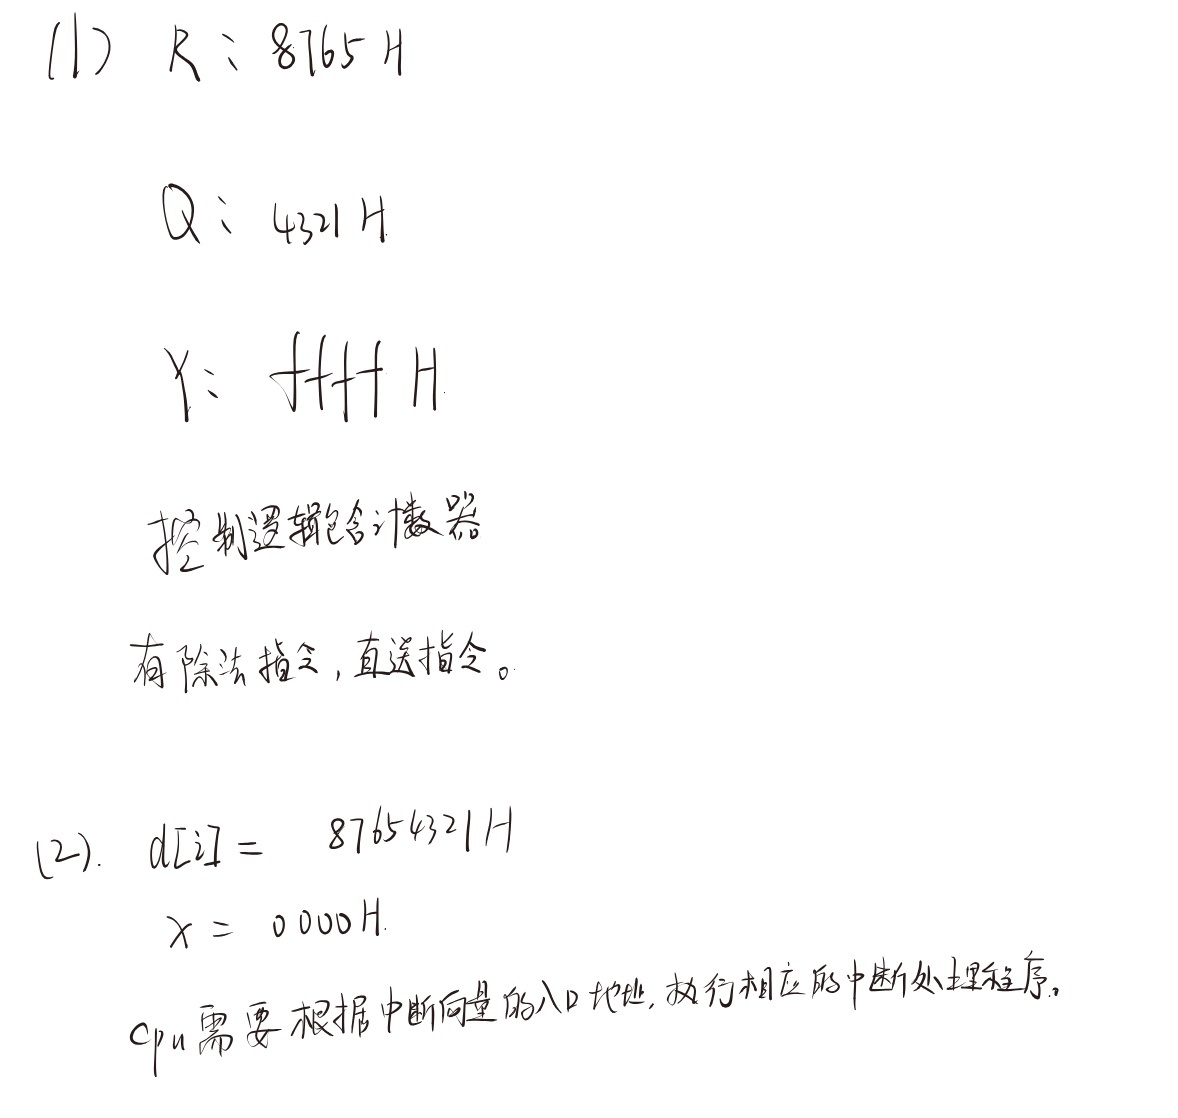 (1) R: 8765 H
Q: 4321 H.
Y: ffff H.
控制逻辑包含计数器
有除法指令,直送指令。
(2). d[i] = 87654321 H
x = 0000H.
cpu需要根据中断向量的入口地址,执行相应的中断处理程序。